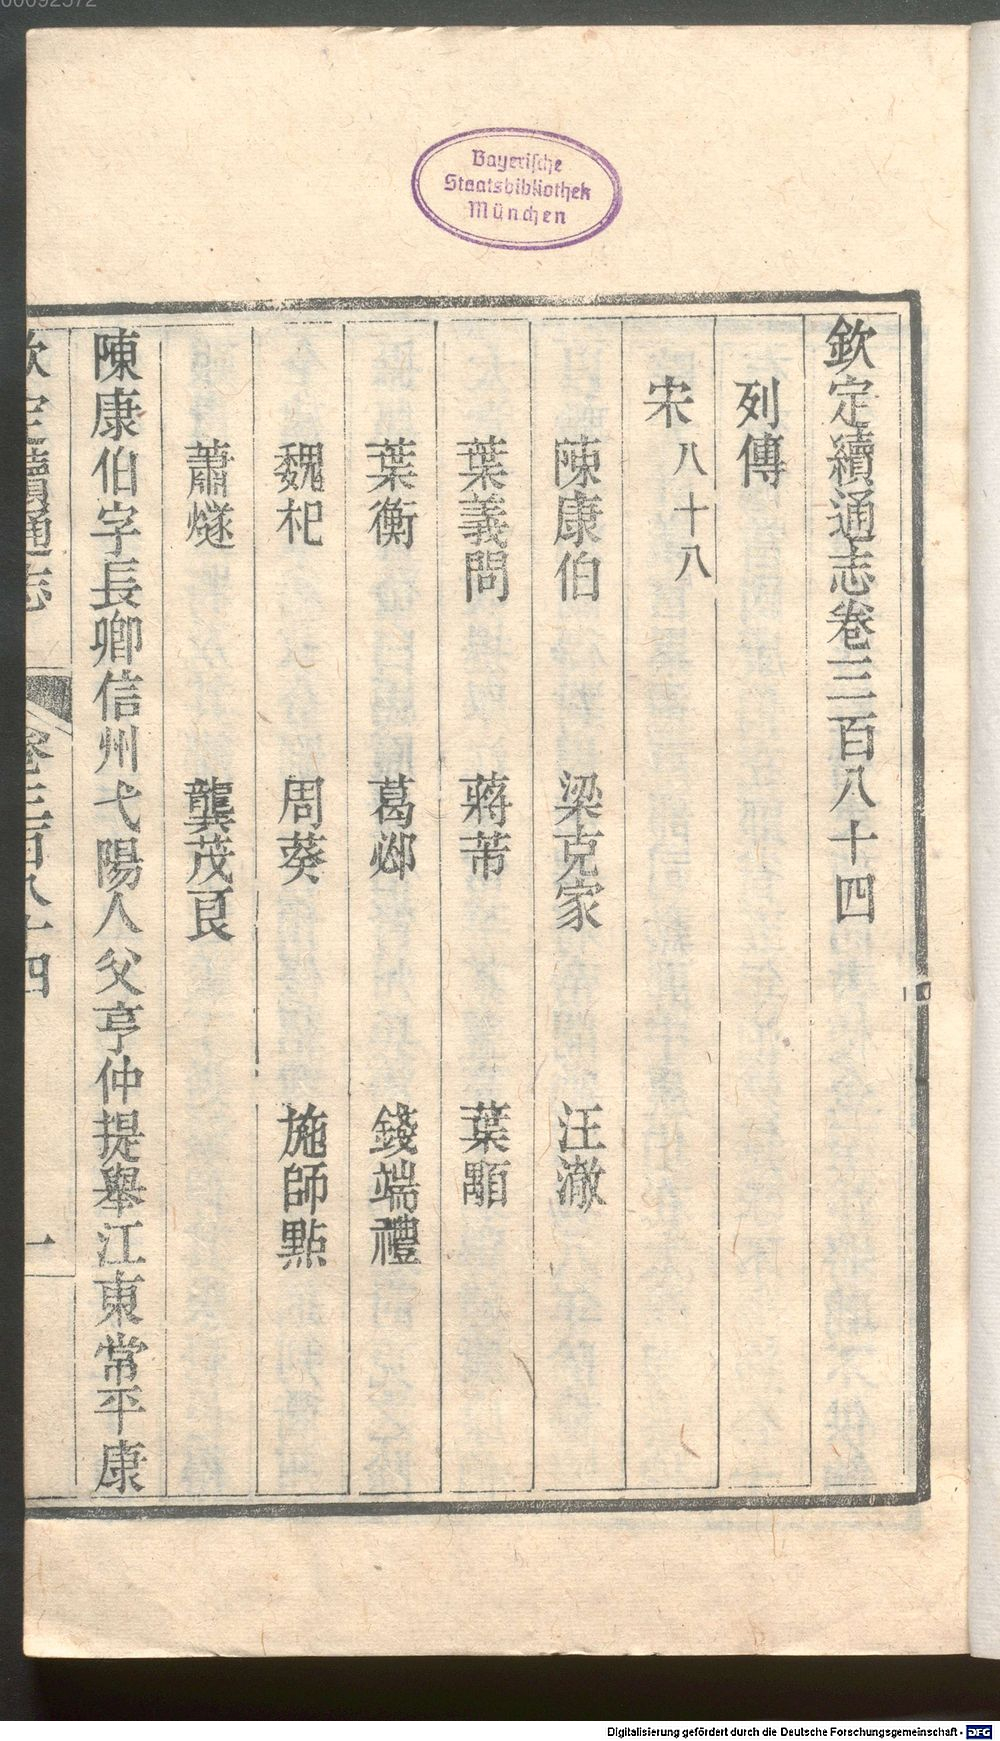 00092572
Bayerische
Staatsbibliothek
München
欽定續通志卷三百八十四
列傳
宋八十八
陳康伯 梁克家 汪澈
葉義問 蔣芾 葉顒
葉衡 葛邲 錢端禮
魏杞 周葵 施師點
蕭燧 龔茂良
陳康伯字長卿信州弋陽人父亨仲提舉江東常平康
欽定續通志 卷三百八十四 一
Digitalisierung gefördert durch die Deutsche Forschungsgemeinschaft - DFG